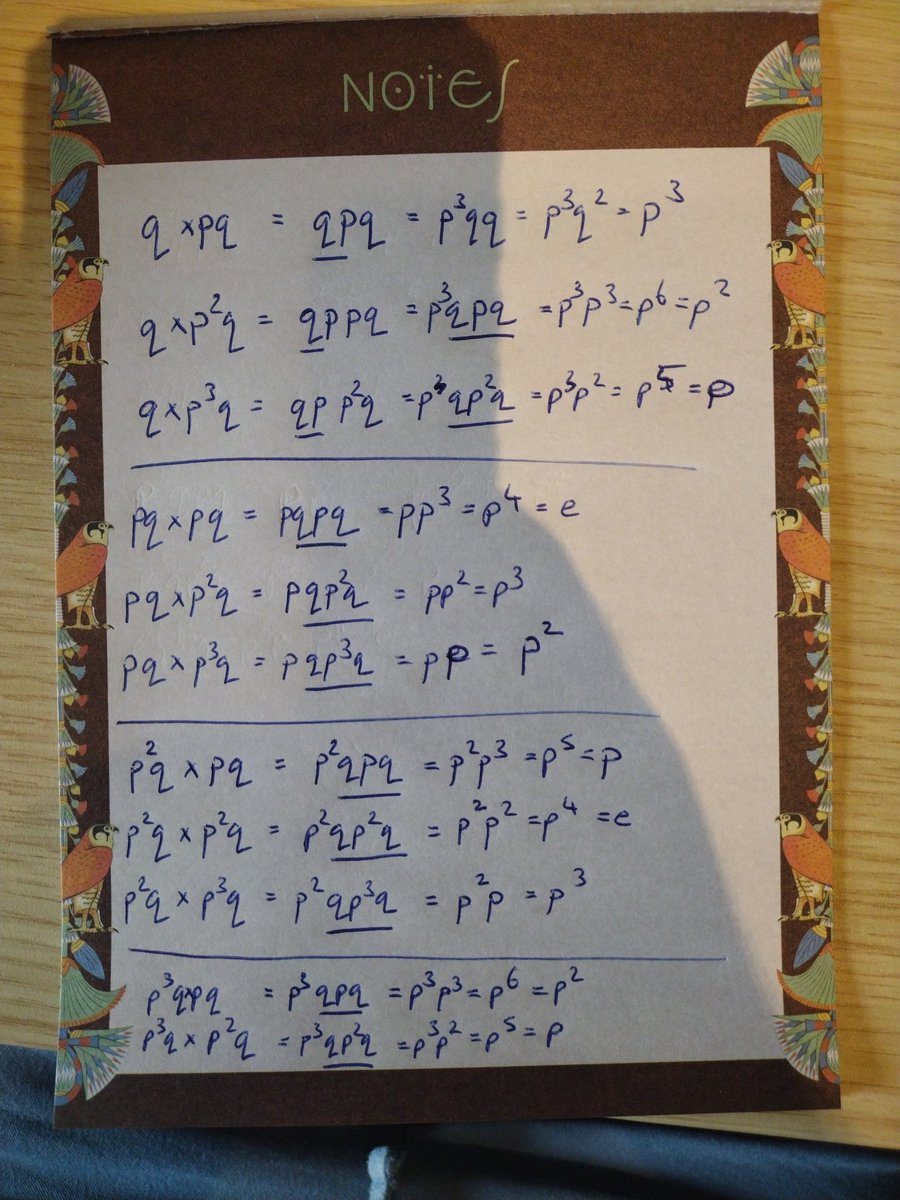 NOTES
q × pq = qpq = p³qq = p³q² = p³
q × p²q = qppq = p³qpq = p³p³ = p⁶ = p²
q × p³q = qp p²q = p³qp²q = p³p² = p⁵ = p
pq × pq = pqpq = pp³ = p⁴ = e
pq × p²q = pqp²q = pp² = p³
pq × p³q = pqp³q = pp = p²
p²q × pq = p²qpq = p²p³ = p⁵ = p
p²q × p²q = p²qp²q = p²p² = p⁴ = e
p²q × p³q = p²qp³q = p²p = p³
p³q×pq = p³qpq = p³p³ = p⁶ = p²
p³q × p²q = p³qp²q = p³p² = p⁵ = p